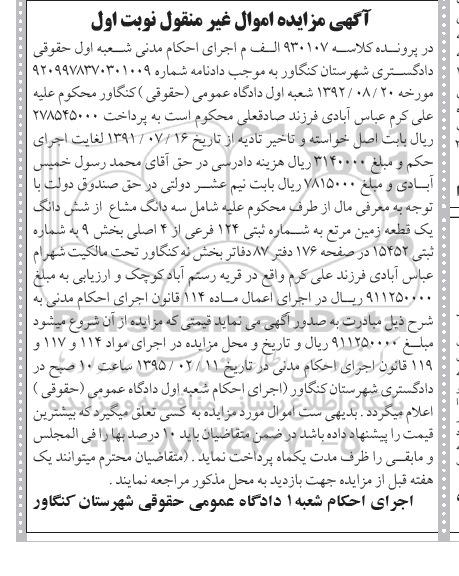 آگهی مزایده اموال غیر منقول نوبت اول
در پرونده کلاسه ۹۳۰۱۰۷ الف م اجرای احکام مدنی شعبه اول حقوقی
دادگستری شهرستان کنگاور به موجب دادنامه شماره ۹۲۰۹۹۷۸۳۷۰۳۰۱۰۰۹
مورخه ۲۰ / ۰۸ / ۱۳۹۲ شعبه اول دادگاه عمومی (حقوقی ) کنگاور محکوم علیه
علی کرم عباس آبادی فرزند صادقعلی محکوم است به پرداخت ۲۷۸۵۴۵۰۰۰
ریال بابت اصل خواسته و تاخیر تادیه از تاریخ ۱۶ / ۰۷ / ۱۳۹۱ لغایت اجرای
حکم و مبلغ ۳۱۴۰۰۰۰ ریال هزینه دادرسی در حق آقای محمد رسول خمیس
آبادی و مبلغ ۷۸۱۵۰۰۰ ریال بابت نیم عشر دولتی در حق صندوق دولت با
توجه به معرفی مال از طرف محکوم علیه شامل سه دانگ مشاع از شش دانگ
یک قطعه زمین مرتع به شماره ثبتی ۱۲۴ فرعی از ۴ اصلی بخش ۹ به شماره
ثبتی ۱۵۴۵۲ در صفحه ۱۷۶ دفتر ۸۷ دفاتر بخش نه کنگاور تحت مالکیت شهرام
عباس آبادی فرزند علی کرم واقع در قریه رستم آباد کوچک و ارزیابی به مبلغ
۹۱۱۲۵۰۰۰۰ ریال در اجرای اعمال ماده ۱۱۴ قانون اجرای احکام مدنی به
شرح ذیل مبادرت به صدور آگهی می نماید قیمتی که مزایده از آن شروع میشود
مبلغ ۹۱۱۲۵۰۰۰۰ ریال و تاریخ و محل مزایده در اجرای مواد ۱۱۴ و ۱۱۷ و
۱۱۹ قانون اجرای احکام مدنی در تاریخ ۱۱ / ۰۲ / ۱۳۹۵ ساعت ۱۰ صبح در
دادگستری شهرستان کنگاور (اجرای احکام شعبه اول دادگاه عمومی (حقوقی )
اعلام میگردد . بدیهی ست اموال مورد مزایده به کسی تعلق میگیرد که بیشترین
قیمت را پیشنهاد داده باشد در ضمن متقاضیان باید ۱۰ درصد بها را فی المجلس
و مابقی را ظرف مدت یکماه پرداخت نماید . (متقاضیان محترم میتوانند یک
هفته قبل از مزایده جهت بازدید به محل مذکور مراجعه نمایند .
اجرای احکام شعبه ۱ دادگاه عمومی حقوقی شهرستان کنگاور